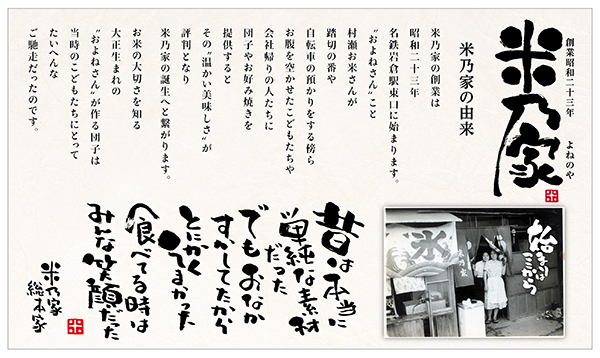 創業昭和二十三年
よねのや
米乃家
米
米乃家の由来
米乃家の創業は
昭和二十三年
名鉄岩倉駅東口に始まります。
“およねさん”こと
村瀬お米さんが
踏切の番や
自転車の預かりをする傍ら
お腹を空かせたこどもたちや
会社帰りの人たちに
団子やお好み焼きを
提供すると
その“温かい美味しさ”が
評判となり
米乃家の誕生へと繋がります。
お米の大切さを知る
大正生まれの
“およねさん”が作る団子は
当時のこどもたちにとって
たいへんな
ご馳走だったのです。
始まりは
ここから
氷
昔は本当に
単純な素材
だった
でもおなか
すかしてたから
とにかく
うまかった
食べてる時は
みんな笑顔だった
米乃家
総本家
米